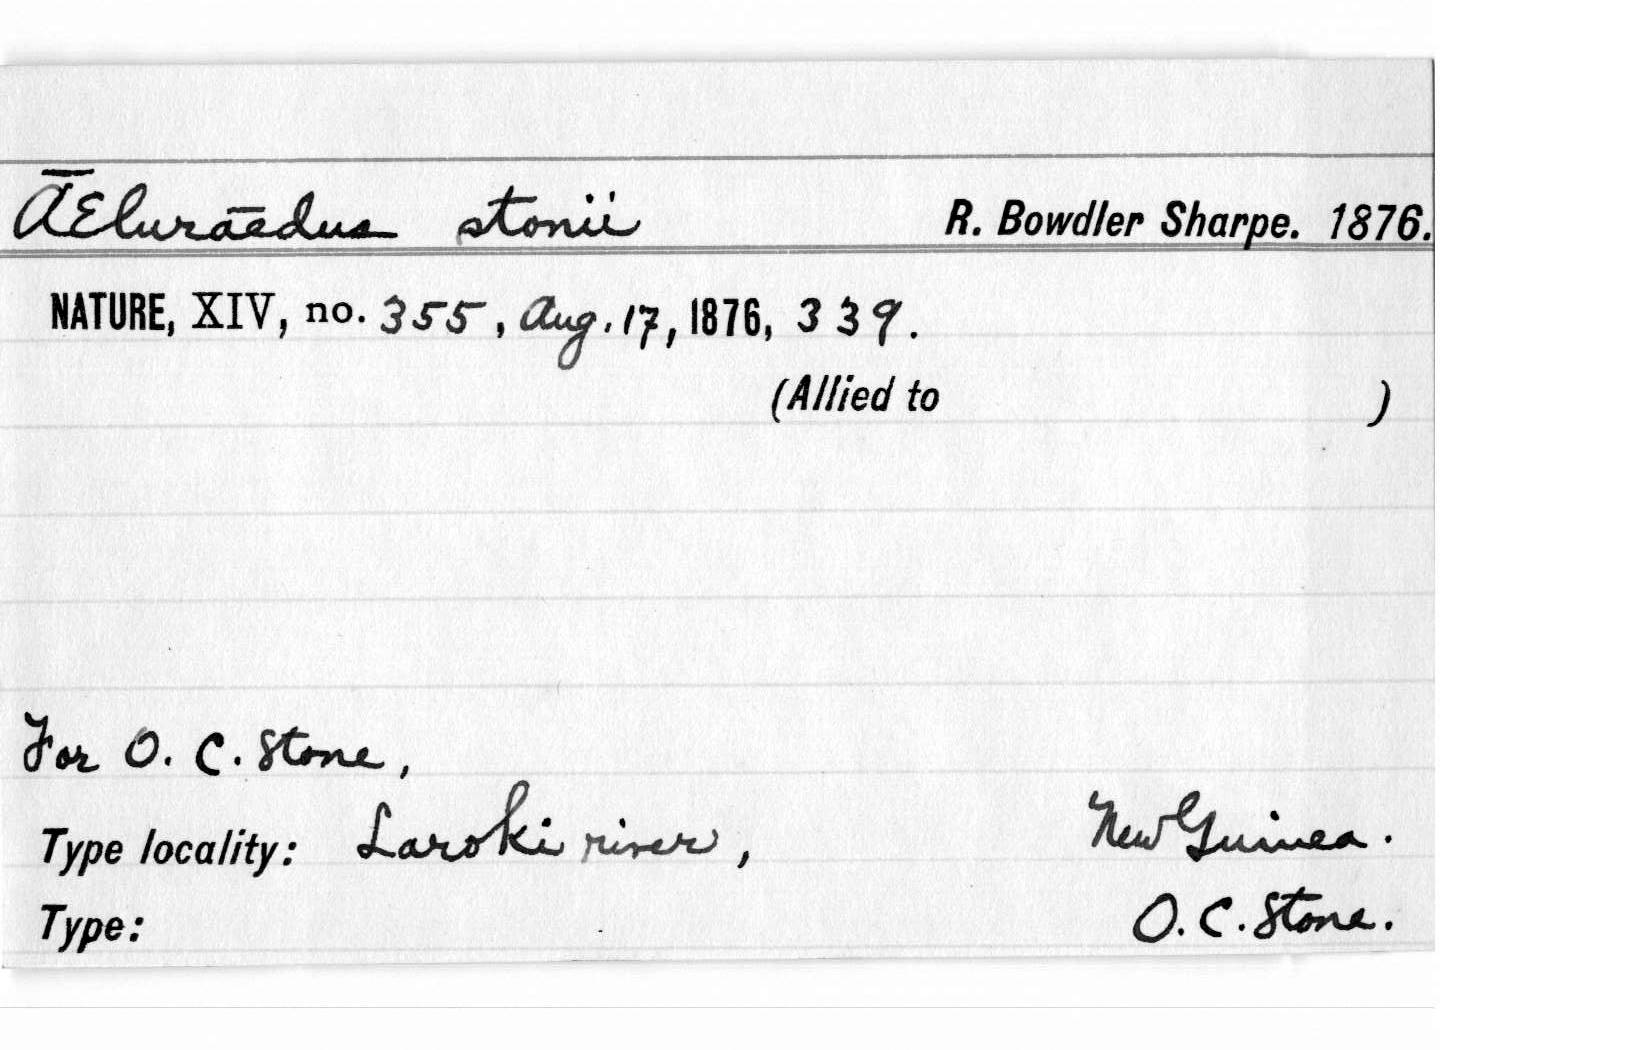 ÆEluraedus stonii R. Bowdler Sharpe. 1876.
NATURE, XIV, no. 355, Aug. 17, 1876, 339.
(Allied to )
For O. C. Stone,
Type locality: Laroki river, New Guinea.
Type: O. C. Stone.